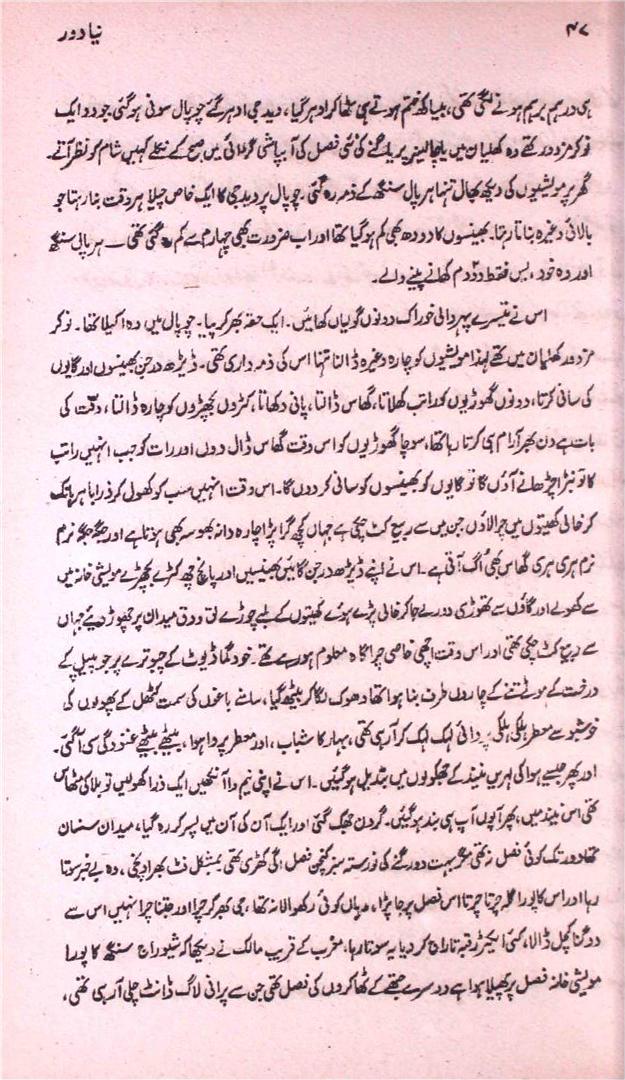 ۴۷
نیا دور
ہی درہم برہم ہونے لگی تھی، بیساکھ ختم ہوتے ہی سٹا کر ادھر گیا، دیدجی ادھر گئے چوپال سونی ہو گئی جو دو ایک
نوکر مزدور تھے وہ کھلیان میں یا چالیسے پر یا گنے کی نئی فصل کی آبپاشی گڑائی میں صبح کے نکلے کہیں شام کو نظر آتے۔
گھر پر مویشیوں کی دیکھ بھال تنہا ہرپال سنگھ کے ذمہ رہ گئی۔ چوپال پر دیدجی کا ایک خاص چیلا ہر وقت بنا رہتا جو
بالائی وغیرہ بناتا رہتا۔ بھینسوں کا دودھ بھی کم ہو گیا تھا اور اب ضرورت بھی چہارم سے کم رہ گئی تھی — ہرپال سنگھ
اور وہ خود، بس فقط دو دم کھانے پینے والے۔
اس نے تیسرے پہر والی خوراک دونوں گولیاں کھائیں۔ ایک حقہ بھر کر پیا۔ چوپال میں وہ اکیلا تھا۔ نوکر
مزدور کھلیان میں تھے لہذا مویشیوں کو چارہ وغیرہ ڈالنا تنہا اس کی ذمہ داری تھی۔ ڈیڑھ درجن بھینسوں اور گایوں
کی سانی کرتا، دونوں گھوڑیوں کو راتب کھلاتا، گھاس ڈالتا، پانی دکھاتا، کٹروں بچھڑوں کو چارہ ڈالتا، دقّت کی
بات ہے دن بھر آرام ہی کرتا رہا تھا، سوچا گھوڑیوں کو اس وقت گھاس ڈال دوں اور رات کو جب انہیں راتب
کا توبڑا چڑھانے آؤں گا تو گایوں کو بھینسوں کو سانی کر دوں گا۔ اس وقت انہیں سب کو کھول کر ذرا باہر ہانک
کر خالی کھیتوں میں چرا لاؤں جن میں سے ربیع کٹ چکی ہے جہاں کچھ گرا پڑا چارہ دانہ بھوسہ بھی ہوتا ہے اور جگہ جگہ نرم
نرم ہری ہری گھاس بھی اُگ آتی ہے۔ اس نے اپنے ڈیڑھ درجن گائیں بھینسیں اور پانچ چھ کٹرے بچھڑے مویشی خانہ میں
سے کھولے اور گاؤں سے تھوڑی دور لے جا کر خالی پڑے ہوئے کھیتوں کے لمبے چوڑے لق و دق میدان پر چھوڑ دیئے جہاں
سے ربیع کٹ چکی تھی اور اس وقت اچھی خاصی چراگاہ معلوم ہو رہے تھے۔ خود گماڈیوٹ کے چبوترے پر جو پیپل کے
درخت کے موٹے تنے کے چاروں طرف بنا ہوا تھا دھوک لگا کر بیٹھ گیا، سامنے باغوں کی سمت کٹھل کے پھولوں کی
خوشبو سے معطر ہلکی ہلکی پروائی لہک لہک کر آ رہی تھی، بہار کا شباب، اور معطر پروا ہوا، بیٹھے بیٹھے غنودگی سی آ گئی۔
اور پھر جیسے ہوا کی لہریں نیند کے جھکولوں میں تبدیل ہو گئیں۔ اس نے اپنی نیم وا آنکھیں ایک ذرا کھولیں تو بلا کی مٹھاس
تھی اس نیند میں، پھر آپوں آپ ہی بند ہو گئیں۔ گردن جھک گئی اور ایک آن کی آن میں پسر کر رہ گیا، میدان سنسان
تھا دور تک کوئی فصل نہ تھی مگر بہت دور گنے کی نورستہ سبز کنچی فصل اگی کھڑی تھی بمشکل فٹ بھر اونچی، وہ بے خبر سوتا
رہا اور اس کا پورا گلہ چرتا چرتا اس فصل پر جا پڑا، وہاں کوئی رکھوالا نہ تھا، جی بھر کر چرا اور جتنا چرا نہیں اس سے
دو گنا کچل ڈالا، کئی ایکڑ رقبہ تاراج کر دیا یہ سوتا رہا، مغرب کے قریب مالک نے دیکھا کہ شیوراج سنگھ کا پورا
مویشی خانہ فصل پر پھیلا ہوا ہے دوسرے جتھے کے ٹھاکروں کی فصل تھی جن سے پرانی لاگ ڈانٹ چلی آ رہی تھی،